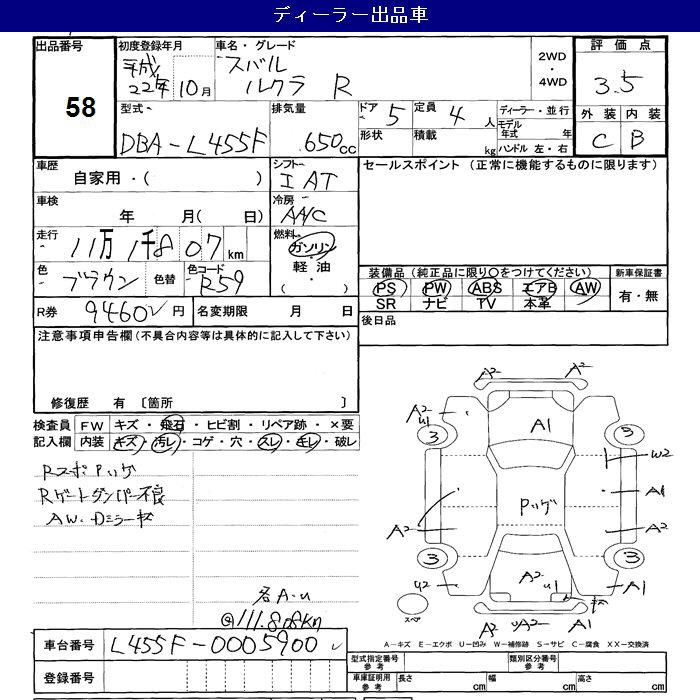 ディーラー出品車
出品番号 初度登録年月 車名・グレード 評価点
58
平成22年10月 スバル
ルクラ R
2WD・4WD
3.5
型式 排気量 ドア 定員 ディーラー・並行 外装 内装
DBA-L455F 650cc 5 4人 モデル年式 年 C B
形状 積載 kg ハンドル 左・右
車歴 シフト セールスポイント (正常に機能するものに限ります)
自家用・( ) IAT
車検 冷房
年 月( 日) A/C
走行 燃料
11万1千807km ガソリン・軽油・( )
色 ブラウン 色替 色コード R59
装備品 (純正品に限り○をつけてください) 新車保証書
PS PW ABS エアB AW 有・無
SR ナビ TV 本革
R券 9460円 名変期限 月 日
後日品
注意事項申告欄 (不具合内容等は具体的に記入して下さい)
修復歴 有 〔箇所 〕
検査員 FW キズ・飛石・ヒビ割・リペア跡・×要
記入欄 内装 キズ・汚レ・コゲ・穴・スレ・キレ・破レ
RスポPハゲ
Rゲートダンパー不良
AW・Dミラーキズ
各A・U
@111.808km
A2 A2
A2
U1 A1
3 3
W2
Pハゲ A1
A2 A2
3 3
U2 A2 U1 A1
スペア
A2 UA2 A1
A-キズ E-エクボ U-凹み W-補修跡 S-サビ C-腐食 XX-交換済
車台番号 L455F-0005900
型式指定番号 参考 類別区分番号 参考
登録番号
車庫証明用 参考 長さ cm 幅 cm 高さ cm